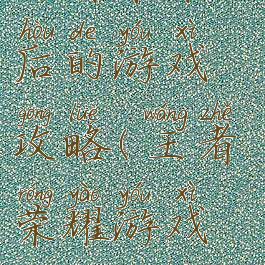 hòu de yóu xì
后的游戏
gōng lüè wáng zhě
攻略(王者
róng yào yóu xì
荣耀游戏